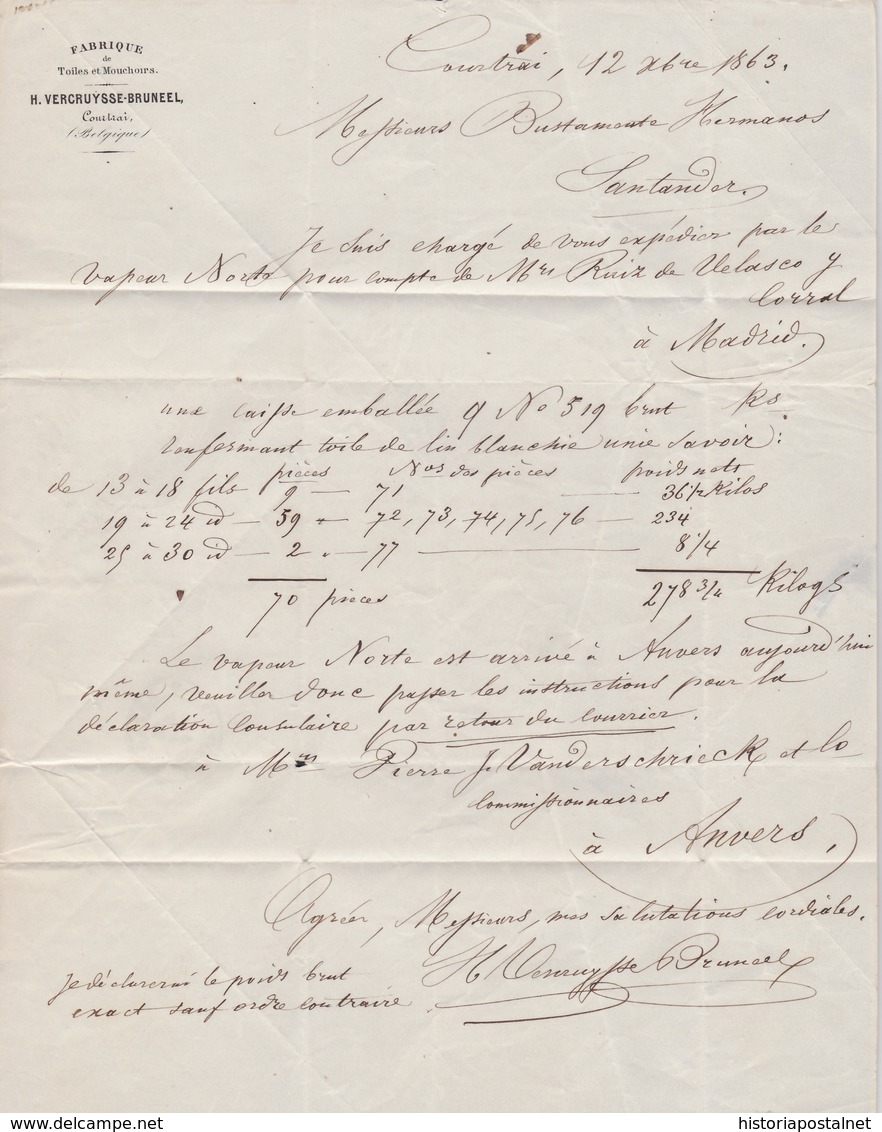 FABRIQUE
de
Toiles et Mouchoirs.
H. VERCRUŸSSE-BRUNEEL,
Courtrai,
(Belgique)
Courtrai, 12 xbre 1863.
Messieurs Bustamente Hermanos
Santander.
Je suis chargé de vous expédier par le
vapeur Norte pour compte de Mrs Ruiz de Velasco y
Corral
à Madrid.
une caisse emballée No 519 brut Ks
renfermant toile de lin blanchie unie savoir:
pièces Nos des pièces poids nets
de 13 à 18 fils 9 — 71 — 36 1/2 Kilos
19 à 24 id — 59 " — 72, 73, 74, 75, 76 — 234
25 à 30 id — 2 " — 77 — 8 1/4
70 pièces 278 3/4 Kilogs
Le vapeur Norte est arrivé à Anvers aujourd'hui
même, veuillez donc passer les instructions pour la
déclaration Consulaire par retour du courrier.
à Mrs Pierre J. Vanderschrieck et Co
Commissionnaires
à Anvers,
Agréez, Messieurs, mes salutations cordiales.
H Vercruysse Bruneel
Je déclarerai le poids brut
exact sauf ordre contraire
delcampe.net
historiapostalnet